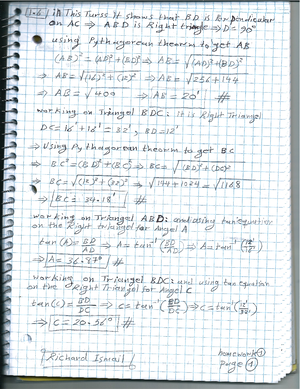 in This Turss It shows that BD is Perpendicular
on AC ⇒ ABD is Right triangle ⇒ D = 90°
using Pythagorean theorem to get AB
(AB)² = (AD)² + (BD)² ⇒ AB = √(AD)² + (BD)²
⇒ AB = √(16)² + (12)² ⇒ AB = √256 + 144
⇒ AB = √409 ⇒ AB = 20' #
working on Triangel BDC: it is Right Triangel
DC = 16' + 16' = 32', BD = 12'
⇒ Using Pythagorean theorem to get BC
⇒ BC² = (BD)² + (DC)² ⇒ BC = √(BD)² + (DC)²
⇒ BC = √(12)² + (32)² ⇒ √144 + 1024 = √1168
⇒ BC = 34.18' #
working on Triangel ABD: and using tan equation
on the Right triangel for angel A
tan(A) = BD/AD ⇒ A = tan⁻¹(BD/AD) ⇒ A = tan⁻¹(12'/16')
⇒ A = 36.87° #
working on Triangel BDC: and using tan equation
on the Right Triangel for Angel C
tan(C) = BD/DC ⇒ C = tan⁻¹(BD/DC) ⇒ C = tan⁻¹(12'/32')
⇒ C = 20.56° #
Richard Ismail
homework 1
page 1